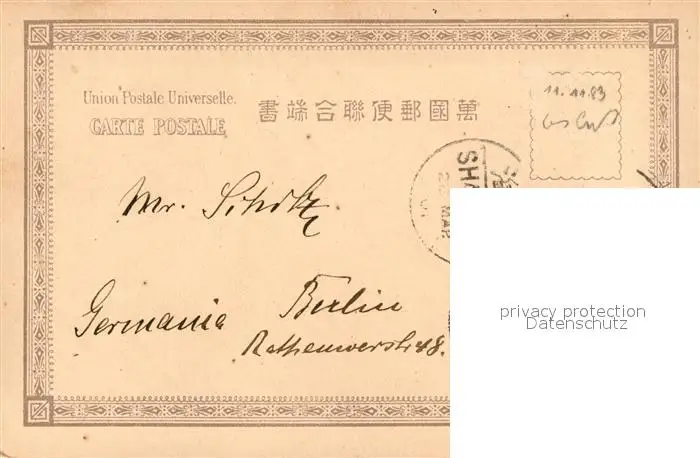 Union Postale Universelle.
CARTE POSTALE
書端合聯便郵國萬
11. 11. 83
SHA
MAR
Mr. Scholtz
Germania Berlin
Rathenowerstr. 48.
privacy protection
Datenschutz